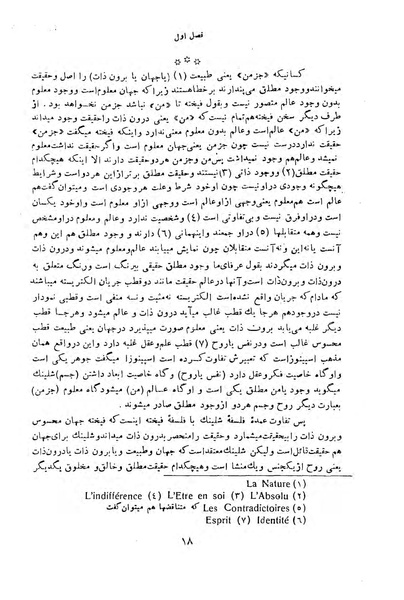 فصل اول
* * *
کسانیکه «جزمن» یعنی طبیعت (۱) (یاجهان یا برون ذات) را اصل وحقیقت
میخوانندووجود مطلق می‌پندارند برخطاهستند زیراکه جهان معلوم‌است ووجود معلوم
بدون وجود عالم متصور نیست وبقول فیخته تا «من» نباشد جزمن نخــواهد بود. از
طرف دیگر سخن فیخته‌هم‌تمام نیست‌که «من» یعنی درون ذات راحقیقت وجود میداند
زیراکه «من» عالم‌است وعالم بدون معلوم معنی‌ندارد واینکه فیخته میگفت «جزمن»
حقیقت‌ندارددرست نیست چون جزمن یعنی‌جهان معلوم است واگرحقیقت نداشت‌معلوم
نمیشد وعالم‌هم وجود نمیداشت پس‌من وجزمن هردوحقیقت دارند الا اینکه هیچکدام
حقیقت مطلق(۲) ووجود ذاتی (۳)نیستند وحقیقت مطلق برترازاین هردواست وشرایط
هیچگونه وجودی دراونیست چون اوخود شرط وعلت هروجودی است ومیتوان‌گفت‌هم
عالم است هم‌معلوم یعنی‌وجهی ازاوعالم است ووجهی ازاو معلوم است واوخود یکسان
است ودراوفرق نیست وبی‌تفاوتی است (۴) وشخصیت ندارد وعالم ومعلوم دراومشخص
نیست وهمه متقابلها (۵) دراو جمعند واینهمانی (۶) دارند و وجود مطلق هم این وهم
آنست یانه‌این ونه‌آنست متقابلان چون نمایش مییابند عالم‌ومعلوم میشوند ودرون ذات
وبرون ذات میگردند بقول عرفای‌ما وجود مطلق حقیقی بیرنگ است ورنگ متعلق به
درون‌ذات وبرون‌ذات‌است وآنها درعالم حقیقت مانند دوقطب جریان الکتریسته میباشند
که مادام‌که جریان واقع نشده‌است الکتریسته نه‌مثبت ونــه منفی است وقطبی نمودار
نیست دروجودهم هرجا یك قطب غالب میآید درون ذات و عالم میشود وهرجا قطب
دیگر غلبه می‌یابد برون ذات یعنی معلوم صورت میپذیرد درجهان یعنی طبیعت قطب
محسوس غالب است ودرنفس یاروح (۷) قطب علم‌وعقل غلبه دارد واین درواقع همان
مذهب اسپینوزاست که تعبیرش تفاوت‌کرده است اسپینوزا میگفت جوهر یکی است
واوگاه خاصیت فکروعقل دارد (نفس یاروح) و گاه خاصیت ابعاد داشتن (جسم)شلینك
میگوید وجود یامن مطلق یکی است و اوگاه عـالم (من) میشودگاه معلوم (جزمن)
بعبارت دیگر روح وجسم هردو ازوجود مطلق صادر میشوند.
پس تفاوت عمدهٔ فلسفهٔ شلینك با فلسفهٔ فیخته اینست‌که فیخته جهان محسوس
وبرون ذات رابیحقیقت‌میشمارد وحقیقت رامنحصر بدرون ذات میداندوشلینك برای‌جهان
هم حقیقت‌قائل‌است ولیکن شلینك‌معتقداست‌که جهان وطبیعت ویابرون ذات یادرون‌ذات
یعنی روح ازیکجنس ویك‌منشا است وهیچکدام حقیقت‌مطلق وخالق‌و مخلوق یکدیگر
(۱) La Nature
(۲) L'Absolu (۳) L'Etre en soi (۴) L'indifférence
(۵) Les Contradictoires که متناقضها هم میتوان‌گفت
(۶) Identité (۷) Esprit
۱۸